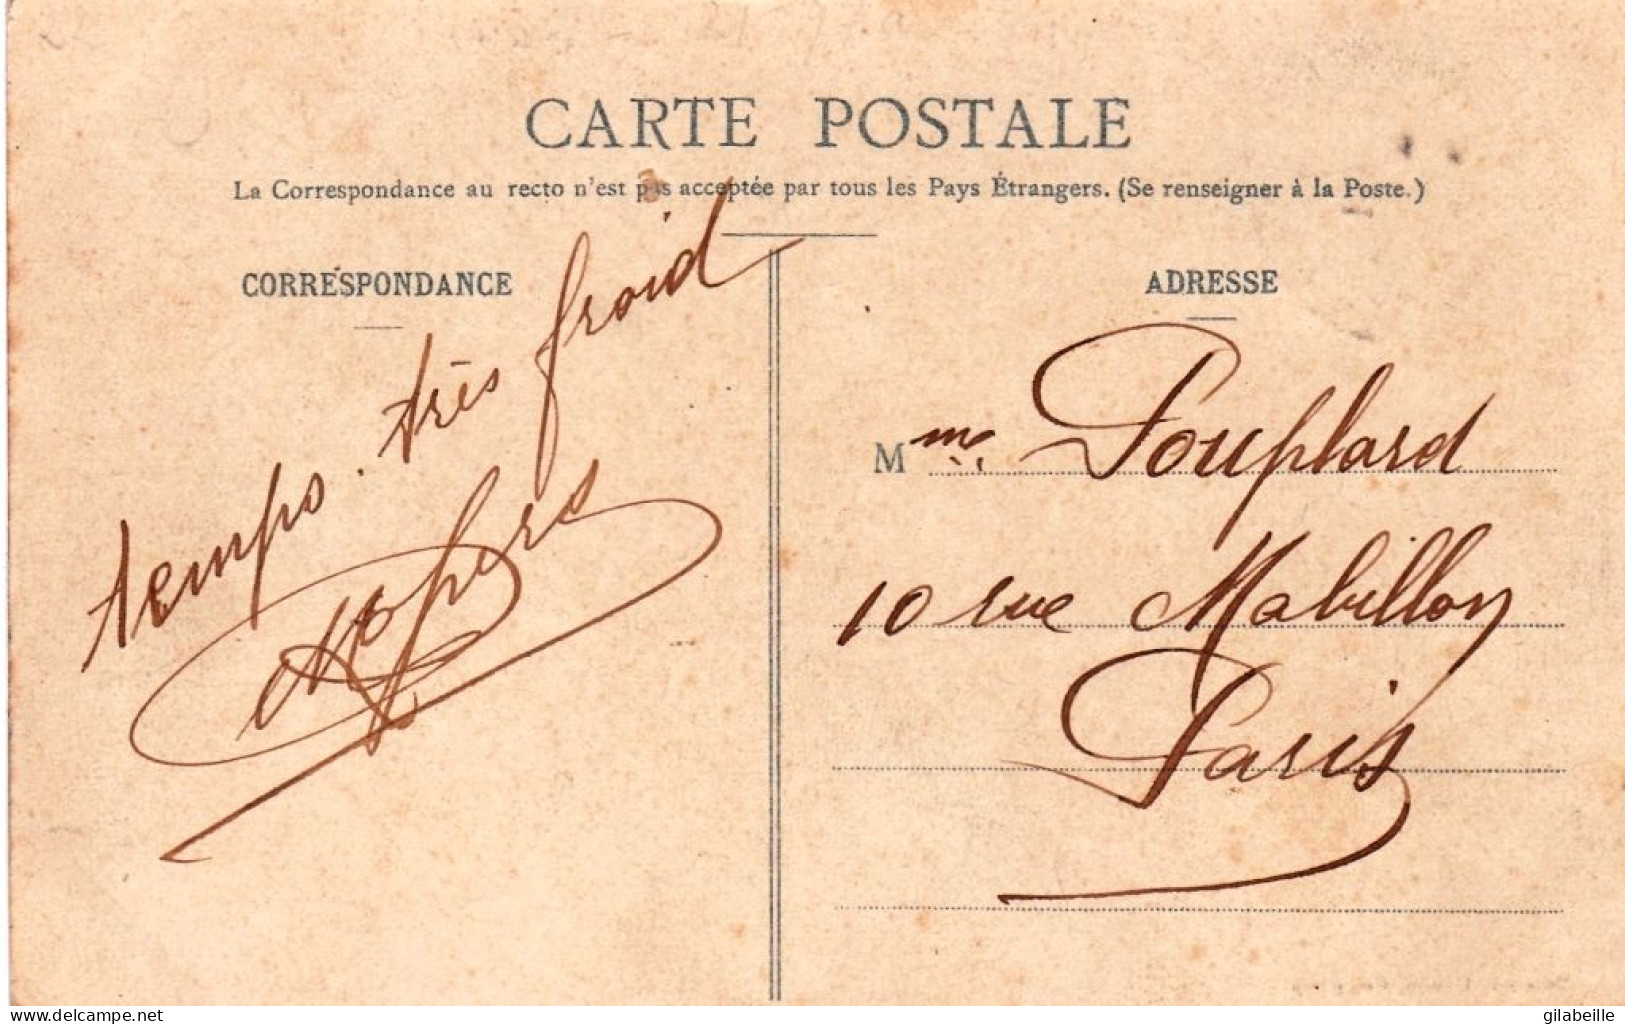 CARTE POSTALE
La Correspondance au recto n'est pas acceptée par tous les Pays Étrangers. (Se renseigner à la Poste.)
CORRESPONDANCE
temps. très froid
ADRESSE
Mme Pouplard
10 rue Mabillon
Paris
www.delcampe.net
gilabeille